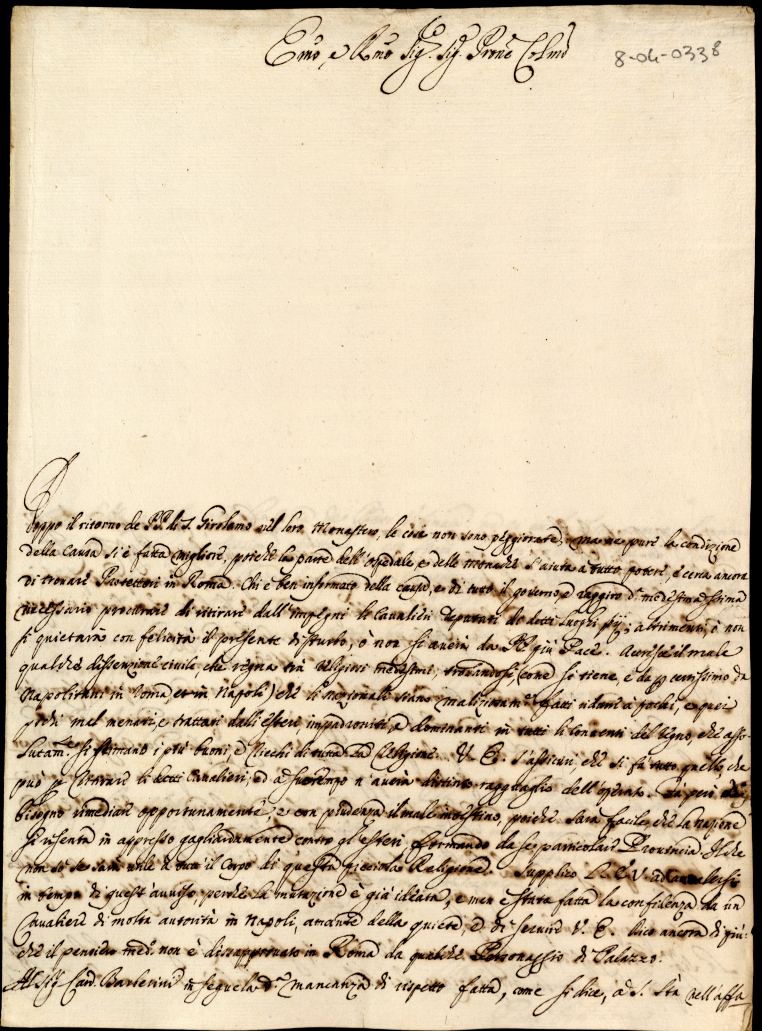 Emo, e Rmo Sig.r Sig.r Prone Colmo
8-04-0338
Doppo il ritorno de PP. di S. Girolamo nel loro Monastero, le cose non sono peggiorate, ma ne pure la condizione
della causa si è fatta migliore, poiche la parte dell'ospedale, e delle monache s'aiuta a tutto potere, è certa ancora
di trovare Protettori in Roma. Chi è ben informato della causa, e di tutto il governo,
necessario procurare di ritirare dall'impegni li Cavalieri deputati de detti luoghi pij; altrimenti, ò non
si quietarà con felicità il presente disturbo, ò non si averà da PP. più Pace. Accresce il male
qualche dissenzione civile che regna trà Religiosi medesimi, trovandosi (come si tiene, e da certissimo da
Napolitani in Roma, et in Napoli) che li nazionali siano fatti ridurre à pochi, e quei
pochi mal menati, e trattati dalli esteri, impadroniti, e dominanti in tutti li Conventi del Regno, che asso-
lutam.te si stimano i più buoni, e ricchi di tutta la Religione. V. E. s'assicuri, che si fà tutto quello, che
può p ritirare li detti Cavalieri, ed à suo tempo n'averà distinto ragguaglio dell'operato. Sà però
bisogno rimediare opportunamente, e con prudenza il male poiche sarà facile che la nazione
si risenta in appresso gagliardamente contro gl'esteri formando da se particolare Provincia, il che
non sò se sarà utile à tutto il Corpo di questa picciola Religione. Supplico V. E.
in tempo di quest'avviso, perche la mutazione è già ideata, e men'è stata fatta la confidenza da un
Cavaliere di molta autorità in Napoli, amante della quiete, e di servire V. E. Dico ancora di più:
che il pensiero med.o non è disapprovato in Roma da qualche Personaggio di Palazzo.
Al Sig.r Card. Barberini in seguela mancanza di rispetto fatta, come si dice, à S. Stà nell'affa